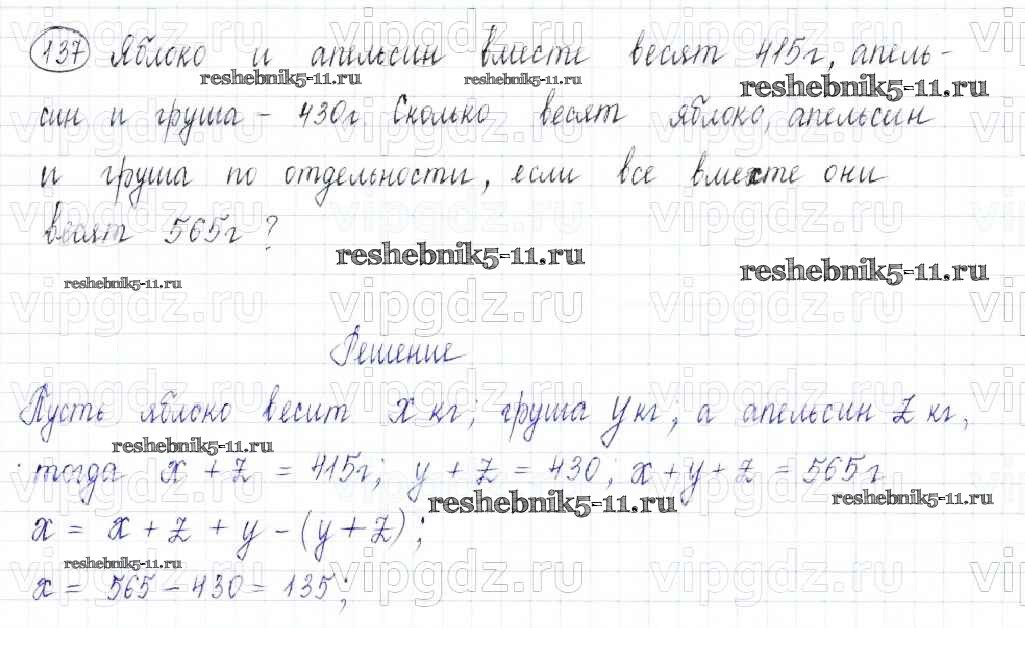 137 Яблоко и апельсин вместе весят 415г, апель-
reshebnik5-11.ru reshebnik5-11.ru reshebnik5-11.ru
син и груша - 430г. Сколько весят яблоко, апельсин
и груша по отдельности, если все вместе они
весят 565г?
reshebnik5-11.ru reshebnik5-11.ru
reshebnik5-11.ru
vipgdz.ru vipgdz.ru
Решение
Пусть яблоко весит x кг; груша y кг; а апельсин z кг,
reshebnik5-11.ru
тогда x + z = 415г; y + z = 430; x + y + z = 565г
reshebnik5-11.ru reshebnik5-11.ru
x = x + z + y - (y + z);
reshebnik5-11.ru
x = 565 - 430 = 135;